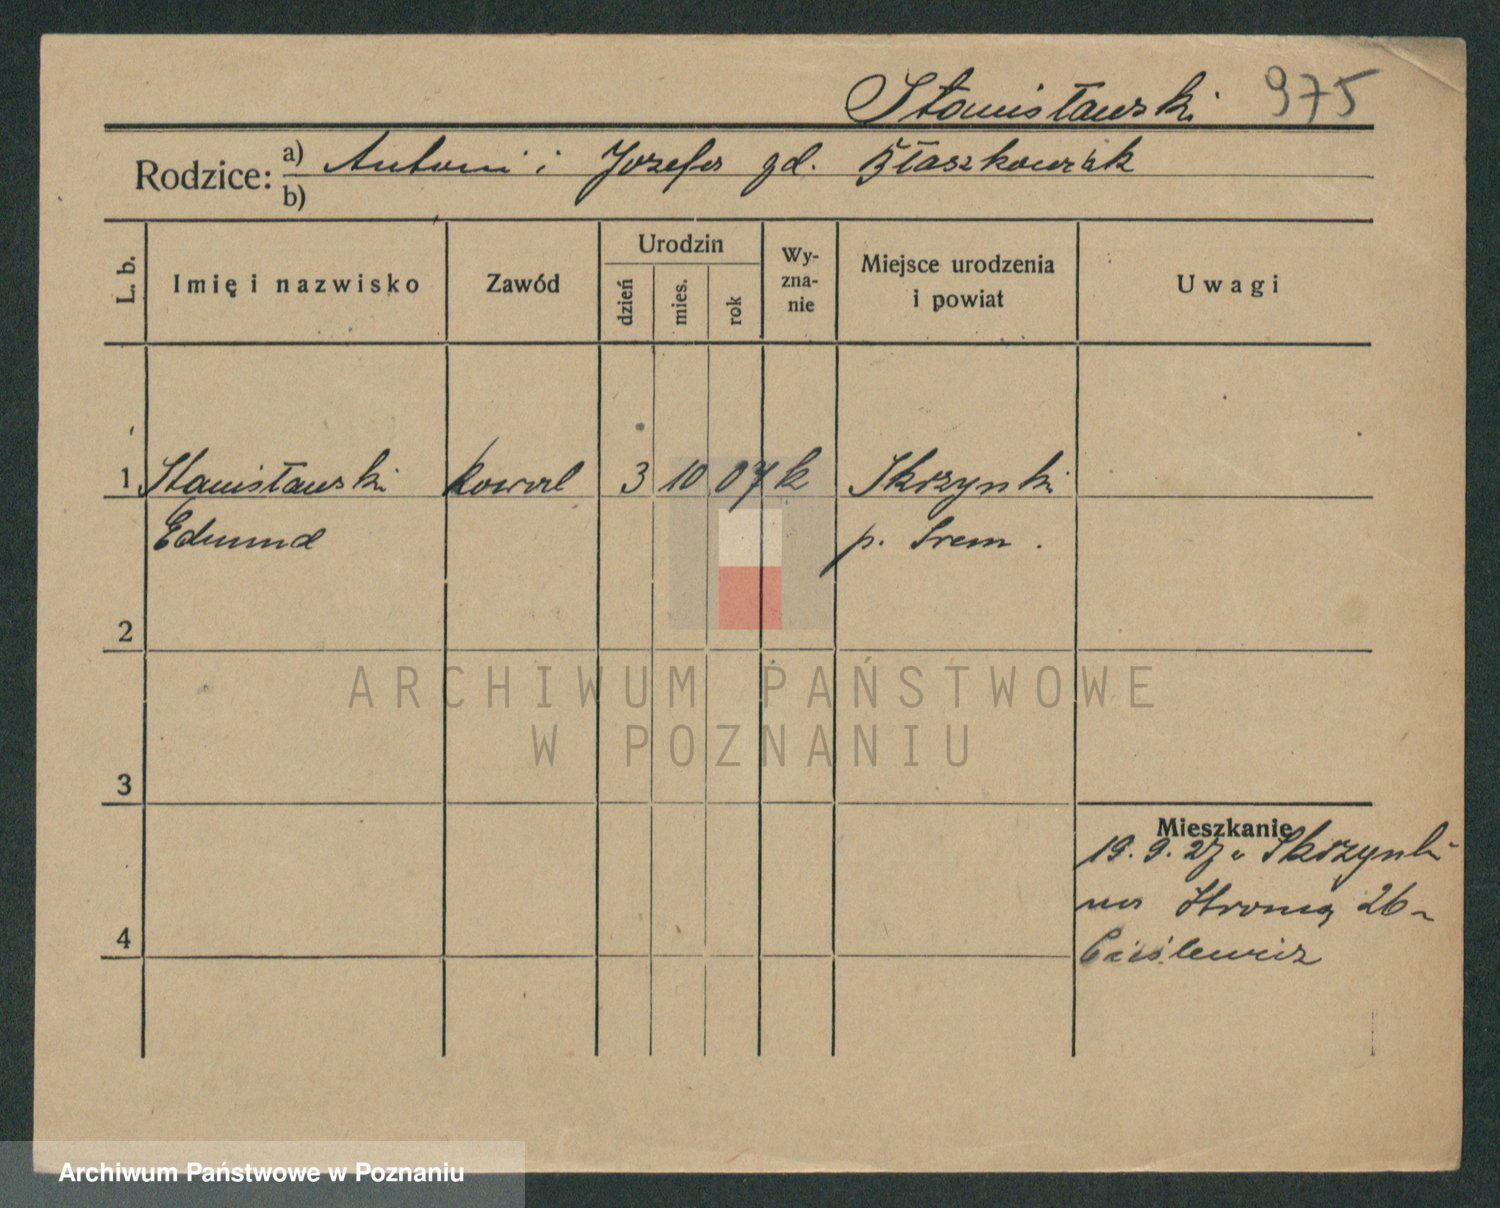 Stanisławski 975
Rodzice: a) Antoni i Jozefa zd. Błaszkowiak
b)
L. b.
Imię i nazwisko
Zawód
Urodzin
dzień
mies.
rok
Wy-
zna-
nie
Miejsce urodzenia
i powiat
Uwagi
1 Stanisławski kowal 3 10 07 k Skrzynki
Edmund p. Srem.
2
ARCHIWUM PAŃSTWOWE
W POZNANIU
3
Mieszkanie
19. 9. 27 Skrzynki
na 26
Cieślewicz
4
Archiwum Państwowe w Poznaniu